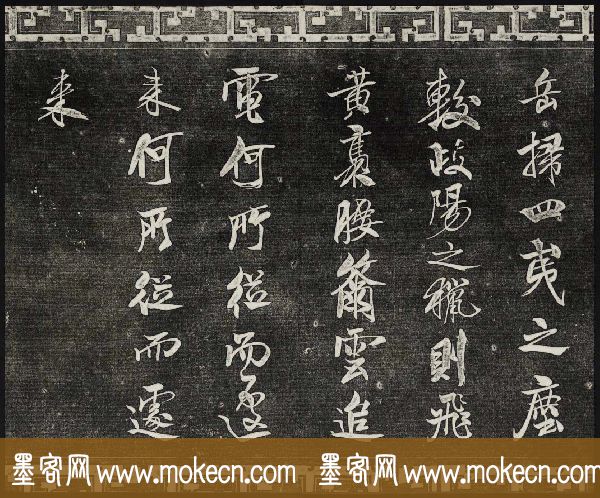 岳掃四夷之塵
較岐陽之獵則飛
黄裊腰籋雲追
電何所從而遽
来何所從而遽
来
墨客网 www.mokecn.com 墨客网 www.mokecn.com